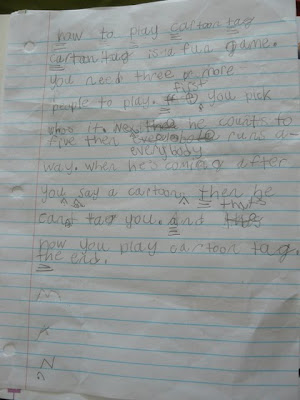 how to play cartoon tag
cartan tag is a fun game.
you need three or more
first
people to play. you pick
whos it. he counts to
five then runs a-
everybody
way. when he's coming after
you say a cartoon then he
this
can't tag you. and
how you play cartoon tag.
the end.
N